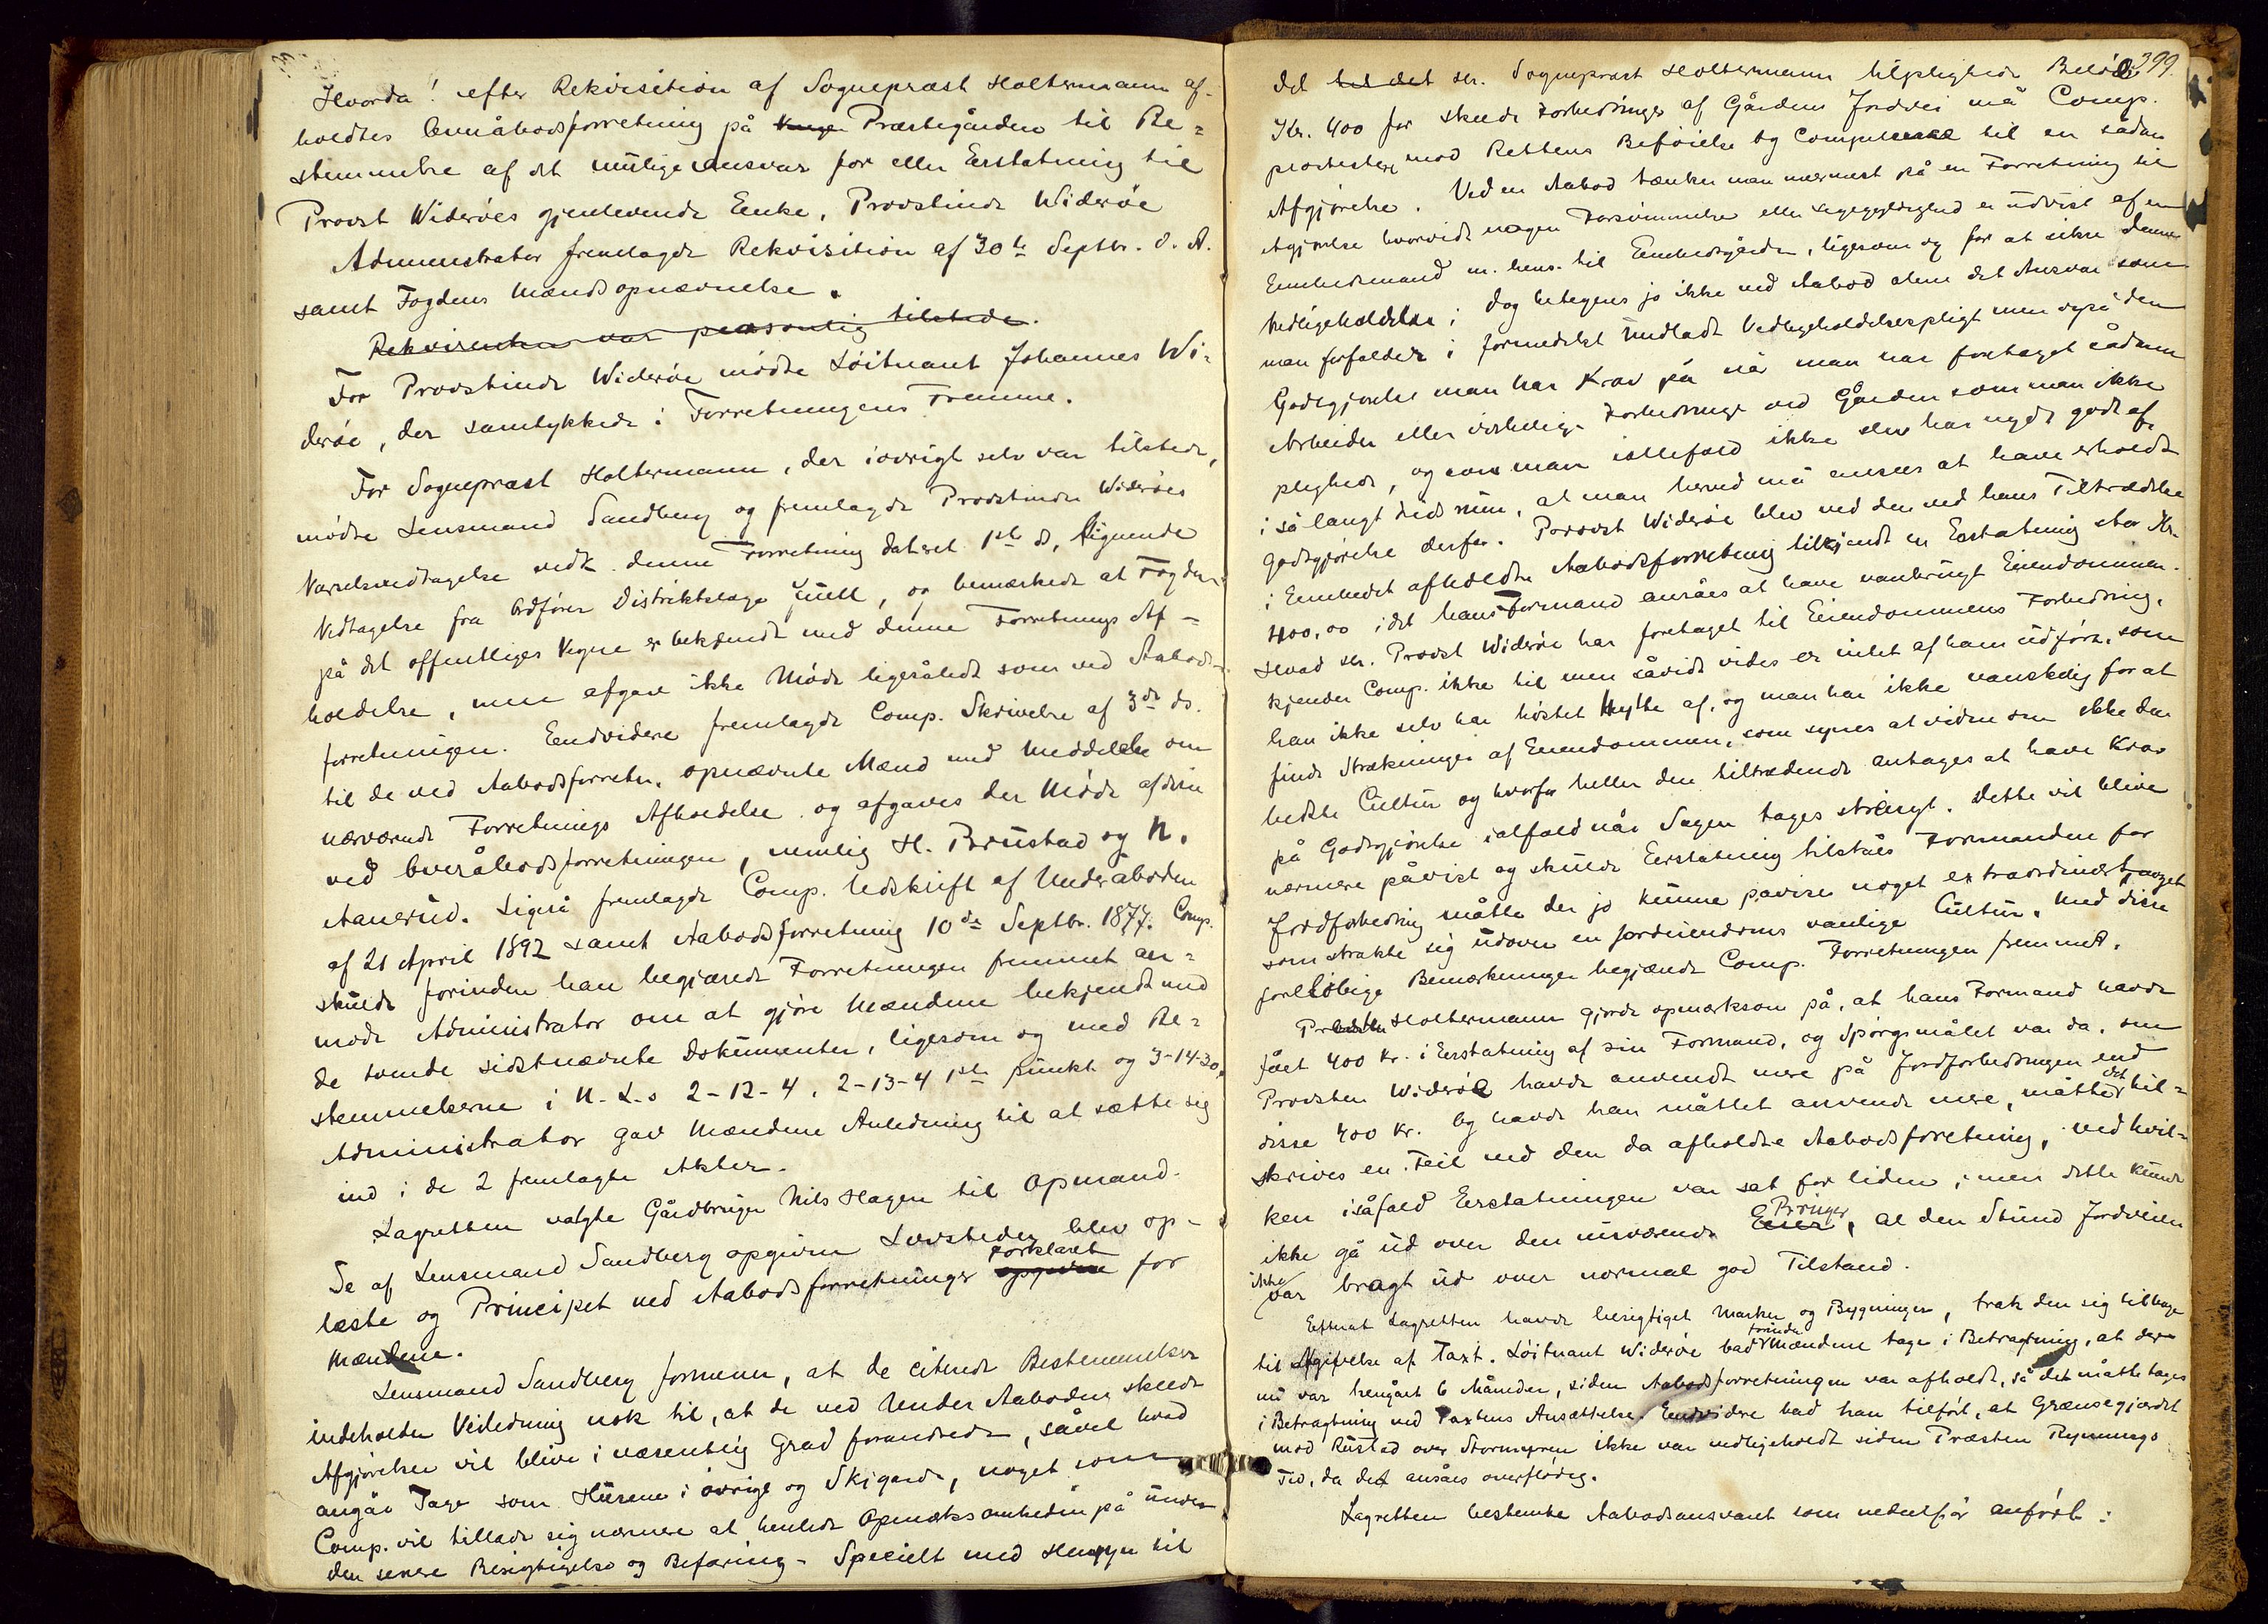 Hvorda! efter Rekvisition af Sognepræst Holtermann af-
holdtes Overåbodsforretning på Præstegården til Be=
stemmelse af det mulige Ansvar for eller Erstatning til
Provst Widerøes gjenlevende Enke, Provstinde Widerøe
Administrator fremlagde Rekvisition af 30te Septbr. d. A.
samt Fogdens Mændsopnævnelse.
Rekvirenten var personlig tilstede.
For Provstinde Widerøe mødte Løitnant Johannes Wi-
derøe, der samtykkede i Forretningens Fremme.
For Sognepræst Holtermann, der iøvrigt selv var tilstede,
mødte Lensmand Sandberg og fremlagde Provstinde Widerøes
Varselsvedtagelse vedk. denne Forretning dateret 1ste ds, lignende
Vedtagelse fra Ordfører Distriktslæge Juell, og bemærkede at Fogden
på det offentliges Vegne er bekjendt med denne Forretnings Af-
holdelse, men afgave ikke Møde ligesålidt som ved Aabods-
forretningen. Endvidere fremlagde Comp. Skrivelse af 3de ds.
til de ved Aabodsforretn. opnævnte Mænd med Meddelelse om
nærværende Forretnings Afholdelse og afgaves der Møde af disse
ved Overåbodsforretningen, nemlig H. Brustad og N.
Aanerud. Ligeså fremlagde Comp. Udskrift af Underåboden
af 21 April 1892 samt Aabodsforretning 10de Septbr. 1877. Comp.
skulde forinden han begjærede Forretningen fremmet an=
mode Administrator om at gjøre Mændene bekjendt med
de tvende sidstnævnte Dokumenter, ligesom og med Be=
stemmelserne i N. L.s 2-12-4, 2-13-4 1ste punkt og 3-14-30.
Administrator gav Mændene Anledning til at sætte sig
ind i de 2 fremlagte Akter.
Lagretten valgte Gårdbruger Nils Hagen til Opmand.
De af Lensmand Sandberg opgivne Lovsteder blev op-
læste og Principet ved Aabodsforretninger opgivne forklaret for
Mændene.
Lensmand Sandberg formener, at de citerede Bestemmelser
indeholder Veiledning nok til, at de ved Under Aaboden skeede
Afgjørelser vil blive i væsentlig Grad forandrede, såvel hvad
angår Tage som Husene i øvrige og Skigarde, noget som
Comp. vil tillade sig nærmere at henlede Opmærksomheden på under
den senere Besigtigelse og Befaring. Specielt med Hensyn til
399.
det hr. Sognepræst Holtermann tilpligtede Beløb
Kr. 400 for skeede Forbedringer af Gårdens Jordvei må Comp.
protestere mod Rettens Beføielse og Competence til en sådan
Afgjørelse. Ved en Aabod tænker man nærmest på en Forretning til
Afgjørelse hvorvidt nogen Forsømmelse eller Ligegyldighed er udvist af en
Embedsmand m. hens. til Embedsgården, ligesom og for at sikre dennes
Vedligeholdelse; dog betegnes jo ikke ved Aabod alene det Ansvar som
man forfalder i formedelst undladt Vedligeholdelsespligt men også den
Godtgjørelse man har Krav på når man har foretaget sådanne
Arbeider eller virkelige Forbedringer ved Gården som man ikke
pligtede, og som man iallefald ikke selv har nydt godt af
i så langt Tidsrum, at man herved må ansees at have erholdt
godtgjørelse derfor. Provst Widerøe blev ved den ved hans Tiltrædelse
i Embedet afholdte Aabodsforretning tilkjendt en Erstatning stor Kr.
400,00 idet hans Formand ansåes at have vanbrugt Eiendommen.
Hvad hr. Provst Widerøe har foretaget til Eiendommens Forbedring,
kjender Comp. ikke til men såvidt vides er intet af ham udført, som
han ikke selv har høstet Nytte af, og man har ikke vanskelig for at
finde Strækninger af Eiendommen, som synes at vidne om ikke den
bedste Cultur og hvorfor heller den tiltrædende antages at have Krav
på Godtgjørelse ialfald når Sagen tages strængt. Dette vil blive
nærmere påvist og skulde Erstatning tilståes Formanden for
Jordforbedring måtte der jo kunne påvises noget extraordinært, noget
som strakte sig udover en jordeiendoms vanlige Cultur. Med disse
foreløbige Bemærkninger begjærede Comp. Forretningen fremmet.
Holtermann gjorde opmærksom på, at hans Formand havde
fået 400 kr. i Erstatning af sin Formand, og Spørgsmålet var da, om
Provsten Widerøe havde anvendt mere på Jordforbedringen end
disse 400 kr. Og havde han måttet anvende mere, måtte det til=
skrives en Feil ved den da afholdte Aabodsforretning, ved hvil=
ken isåfald Erstatningen var sat for liden; men dette kunde
ikke gå ud over den nuværende Eier Bruger, al den Stund Jordveien
ikke var bragt ud over normal god Tilstand.
Efterat Lagretten havde besigtiget Marker og Bygninger, trak den sig tilbage
til Afgivelse af Taxt. Løitnant Widerøe bad forinden Mændene tage i Betragtning, at der
nu var hengået 6 Måneder, siden Aabodsforretningen var afholdt, så det måtte tages
i Betragtning ved Taxtens Ansættelse. Endvidere bad han tilført, at Grænsegjærdet
mod Rustad over Stormyren ikke var vedligeholdt siden Præsten Rynnings
Tid, da det ansåes overflødig.
Lagretten bestemte Aabodsansvaret som nedenfor anført: